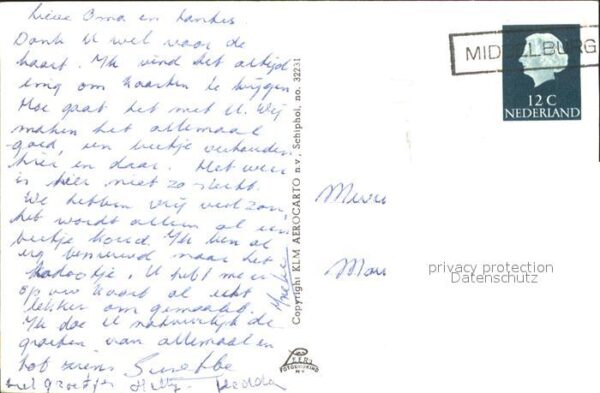 Lieve Oma en tantes.
Dank U wel voor de
kaart. Ik vind het altijd
enig om kaarten te krijgen
Hoe gaat het met U. Wij
maken het allemaal
goed, een beetje verkouden
hier en daar. Het weer
is hier niet zo slecht.
We hebben vrij veel zon,
het wordt alleen al een
beetje koud. Ik ben al
erg benieuwd naar het
kadootje. U hebt me er
op uw kaart al echt
lekker om gemaakt.
Ik doe U natuurlijk de
groeten van allemaal en
tot ziens
met groetjes Hedda
Copyright KLM AEROCARTO n.v., Schiphol, no. 32231
MIDDELBURG
12 C
NEDERLAND
privacy protection
Datenschutz